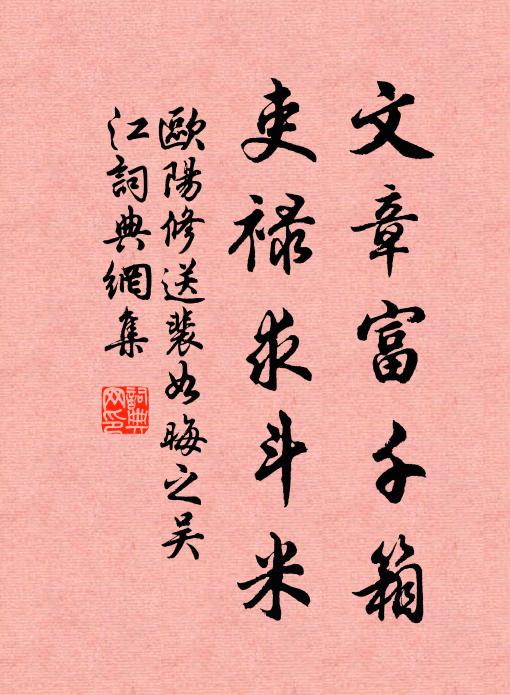 文章富千箱
吏祿求斗米
歐陽修送裴如晦之吴
江詞典網集
詞典
网印